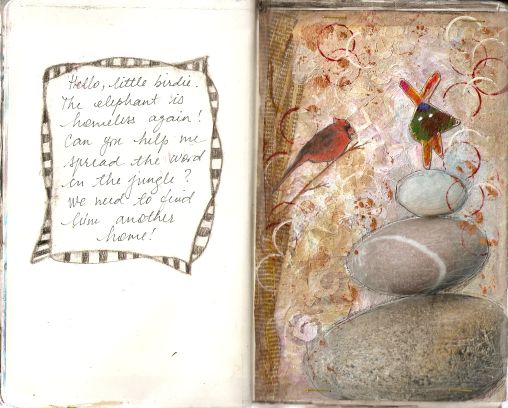 Hello, little birdie.
The elephant is
homeless again!
Can you help me
spread the word
in the jungle?
We need to find
him another
home!